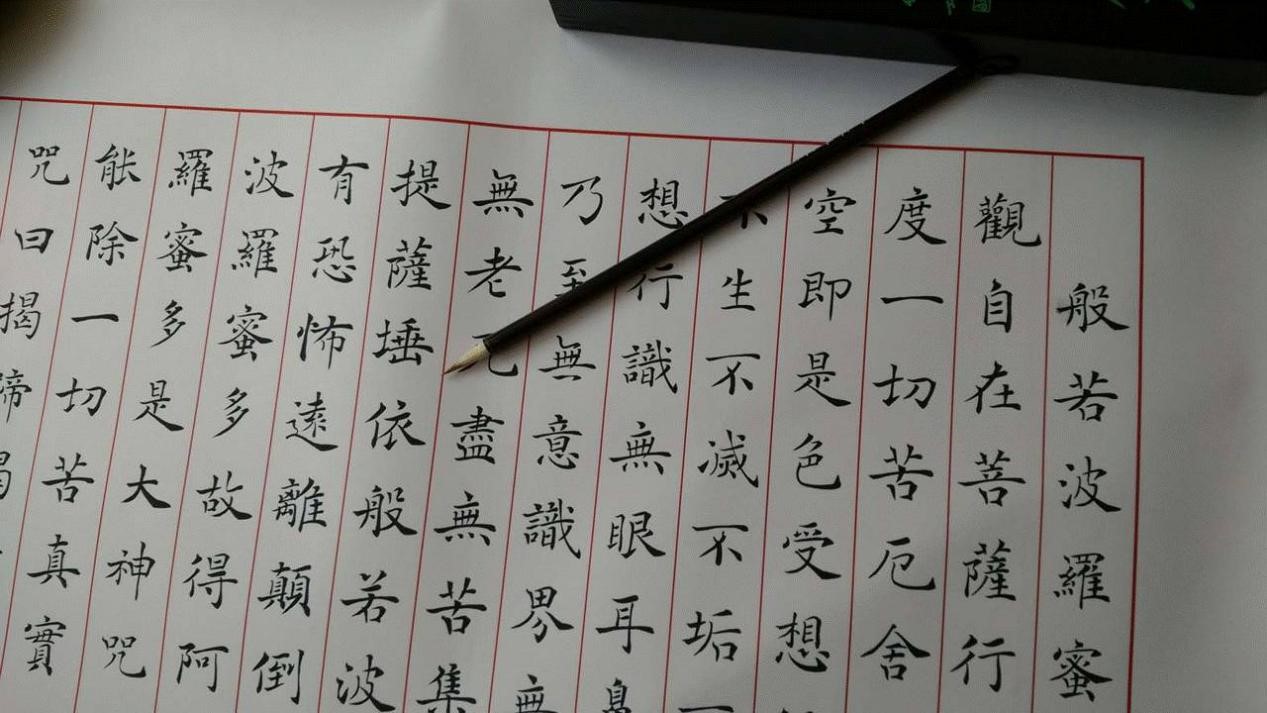 般若波羅蜜
觀自在菩薩行
度一切苦厄舍
空即是色受想
不生不滅不垢
想行識無眼耳鼻
乃至無意識界無
無老死盡無苦集
提薩埵依般若波
有恐怖遠離顛倒
波羅蜜多故得阿
羅蜜多是大神咒
能除一切苦真實
咒曰揭